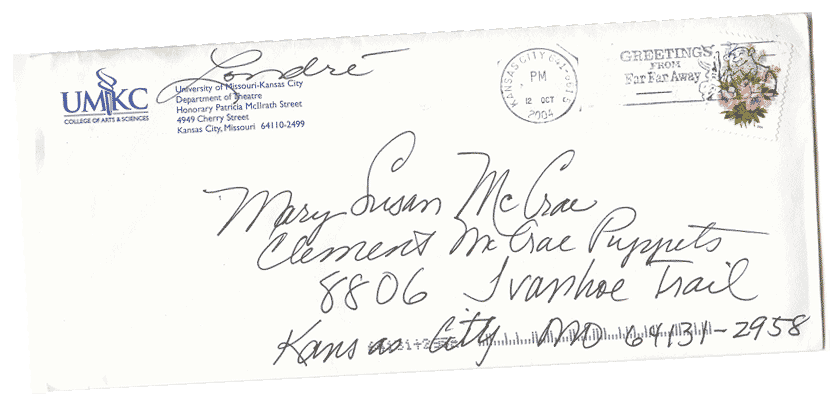 Londré
UMKC
COLLEGE OF ARTS & SCIENCES
University of Missouri-Kansas City
Department of Theatre
Honorary Patricia McIlrath Street
4949 Cherry Street
Kansas City, Missouri 64110-2499
KANSAS CITY
PM
12 OCT
2004
GREETINGS
FROM
Far Far Away
Mary Susan McCrae
Clement McCrae Puppets
8806 Ivanhoe Trail
Kansas City MO 64131-2958